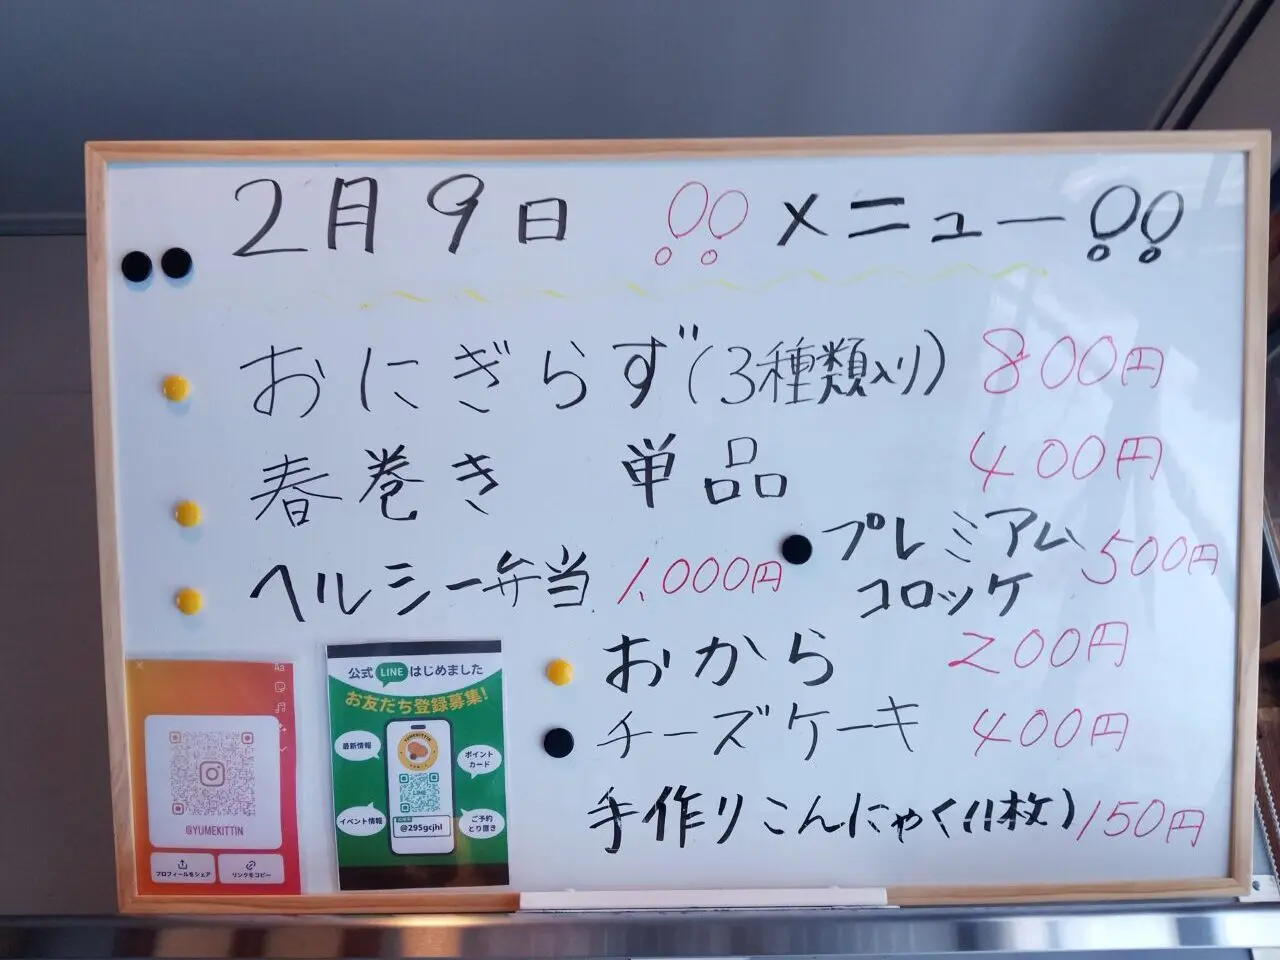 2月9日 !!メニュー!!
おにぎらず(3種類入り) 800円
春巻き 単品 400円
ヘルシー弁当 1,000円
プレミアム
コロッケ 500円
おから 200円
チーズケーキ 400円
手作りこんにゃく(1枚) 150円
Aa
@YUMEKITTIN
プロフィールをシェア
リンクをコピー
公式 LINE はじめました
お友だち登録募集!
最新情報
ポイント
カード
YUMEKITTIN
LINE
@295gcjhl
イベント情報
ご予約
とり置き